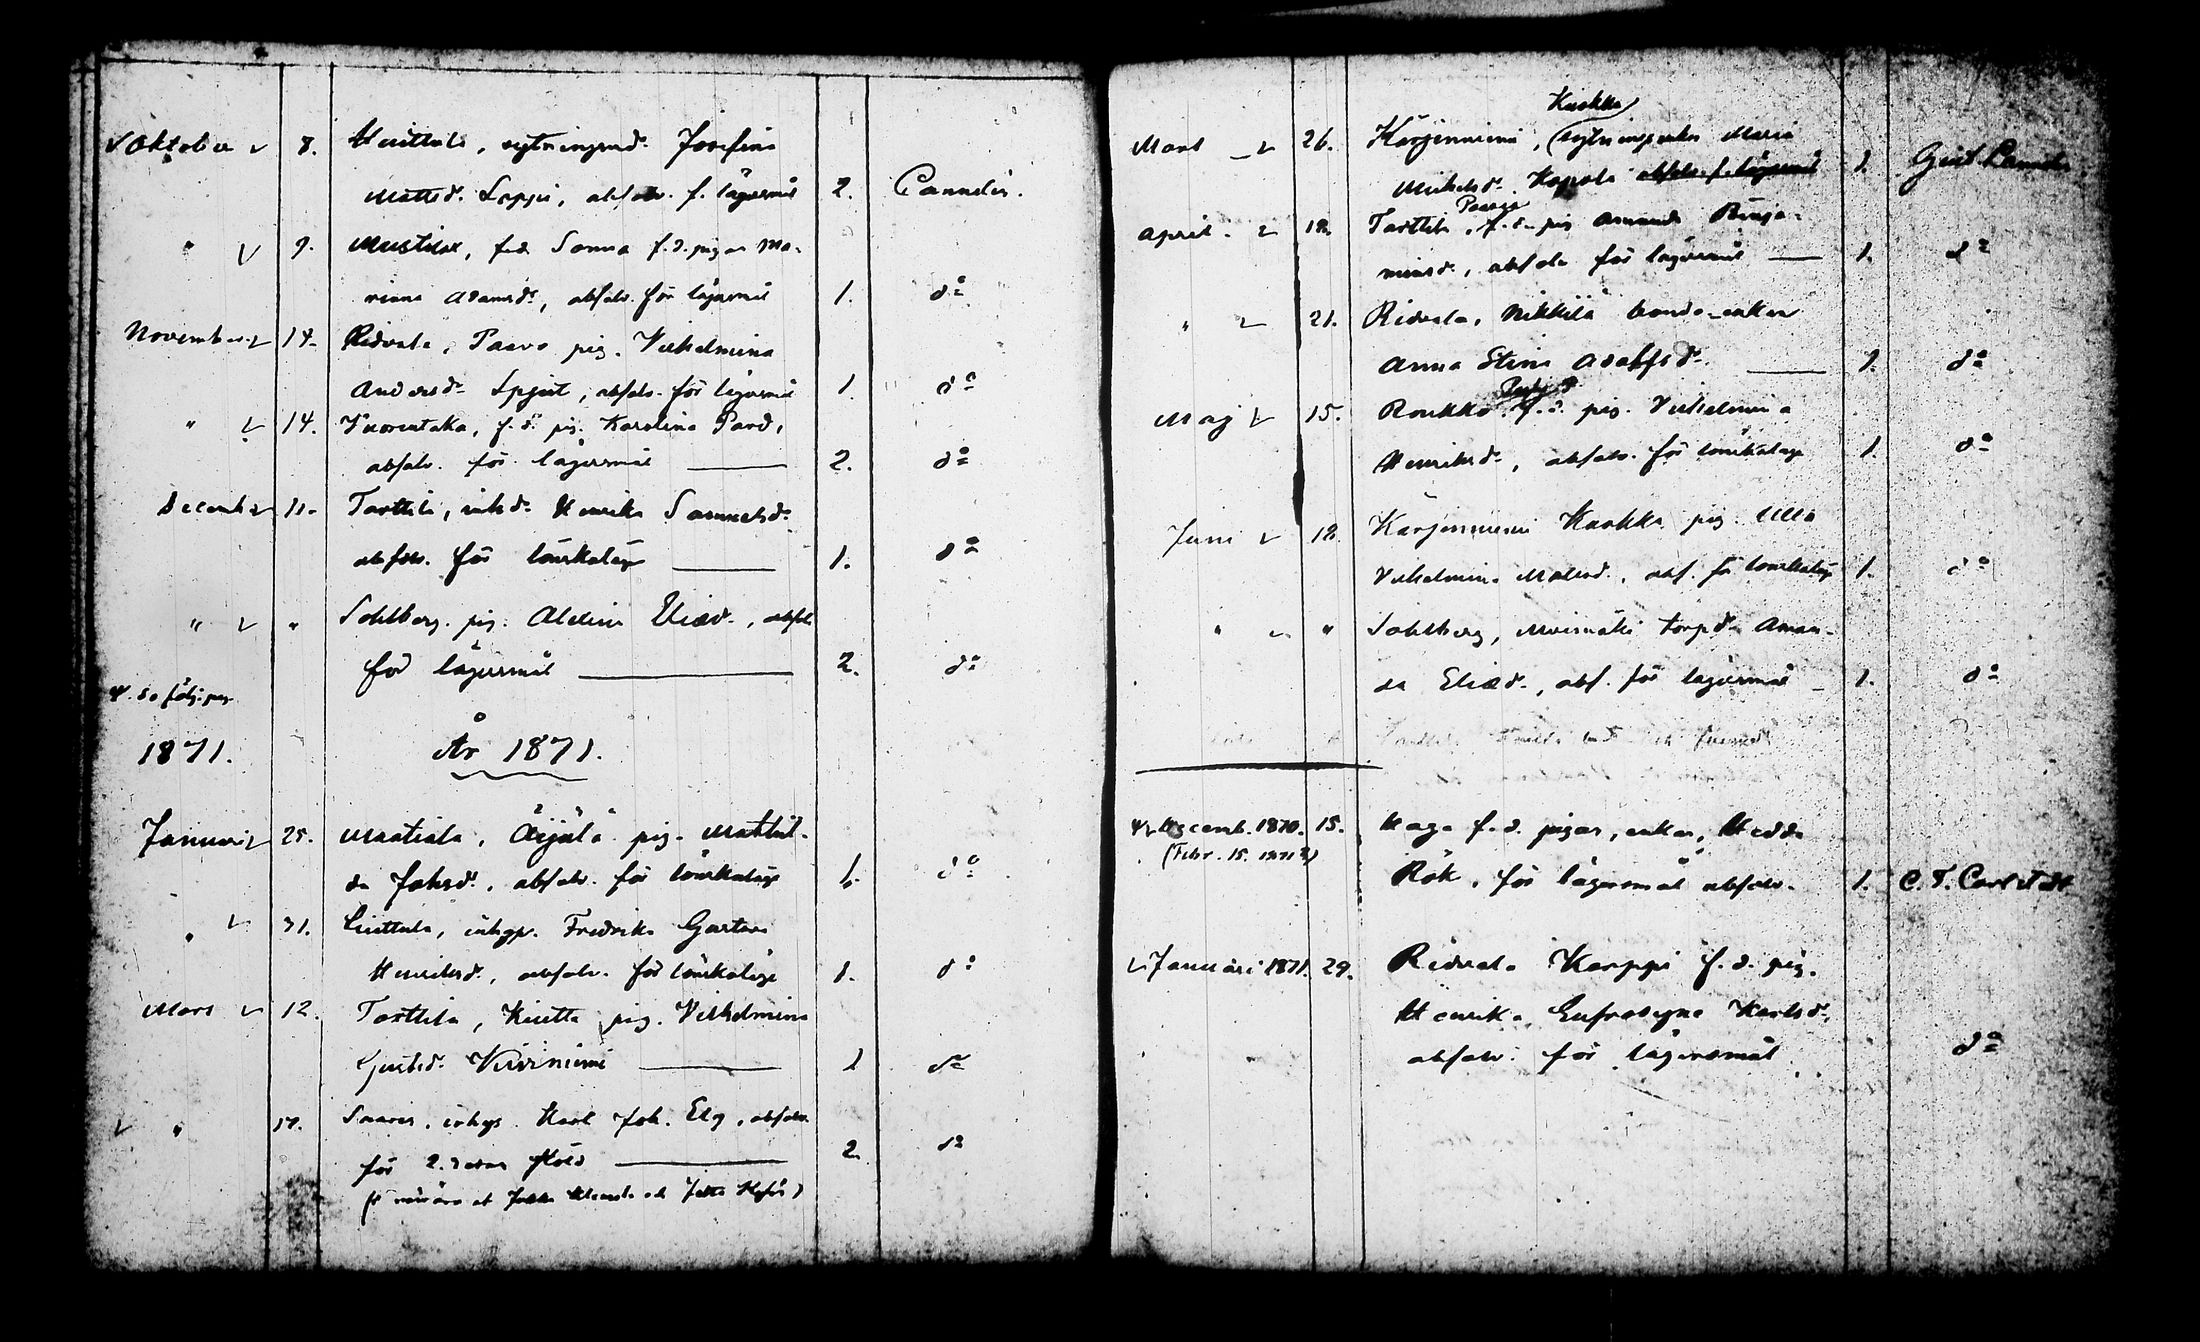 Oktober 8. Huittula, sytningsmd. Josefina
Mattsd. Seppi, absolv. f. lägersmål 2. Cannelin.
" 9. Mustila, fd. Sonna f.d. pigan Ma-
riana Adamsd., absolv. för lägersmål 1. do
November 14. Ridvala, Paavo pig. Vilhelmina
Andersd. absolv. för lägersmål 1. do
" 14. Vuorentaka, f.d. pig. Karolina Pard,
absolv. för lägersmål 2. do
December 11. Tarttila, inhd. Henrika Samuelsd.
absolv. för lönskaläge 1. do
" " Sohlberg. pig. Aldina Eliæd., absolv.
för lägersmål 2. do
1871. År 1871.
Januari 25. Maatiala, Äijälä pig. Mathil-
da Johsd., absolv. för lönskaläge 1. do
" 31. Huittula, inhyp. Fredrika Gustava
Henriksd., absolv. för lönskaläge 1. do
Mars 12. Tarttila, Kietta pig. Vilhelmina
Gustd. Kiviniemi 1 do
" 17. Saaris, inhys. Karl Joh. Elg, absolv.
för 2. resan stöld 2. do
Kuokka
Mars 26. Kärjenniemi, sytningsenkan Maria
Michelsd. Kapola absolv. f. lägersmål 1. Gust.
Paavo
April. 12. Tarttila, f.d. pig Amanda Benja-
minsd., absolv för lägersmål 1. do
" 21. Ridvala, Nikkilä bonde-enkan
Anna Stina Adolfsd. 1. do
Maj 15. Roukko f.d. pig. Vilhelmina
Henriksd., absolv. för lönskaläge 1. do
Juni 18. Kärjenniemi Kuokka pig Ulla
Vilhelmina Matsd., abs. för lönskaläge 1. do
" " Sohlberg, Mvoimäki torpd. Aman-
da Eliæd., abs. för lägersmål 1. do
Decemb. 1870. 15. Haga f.d. pigan, enkan, Hedda
(Febr. 15. 1871?)
Rök, för lägersmål absolv. 1. C. F. Carlstedt
Januari 1871. 29. Ridvala Karppi f.d. pig.
Henrika Eufrosyne Karlsd.
absolv. för lägersmål do